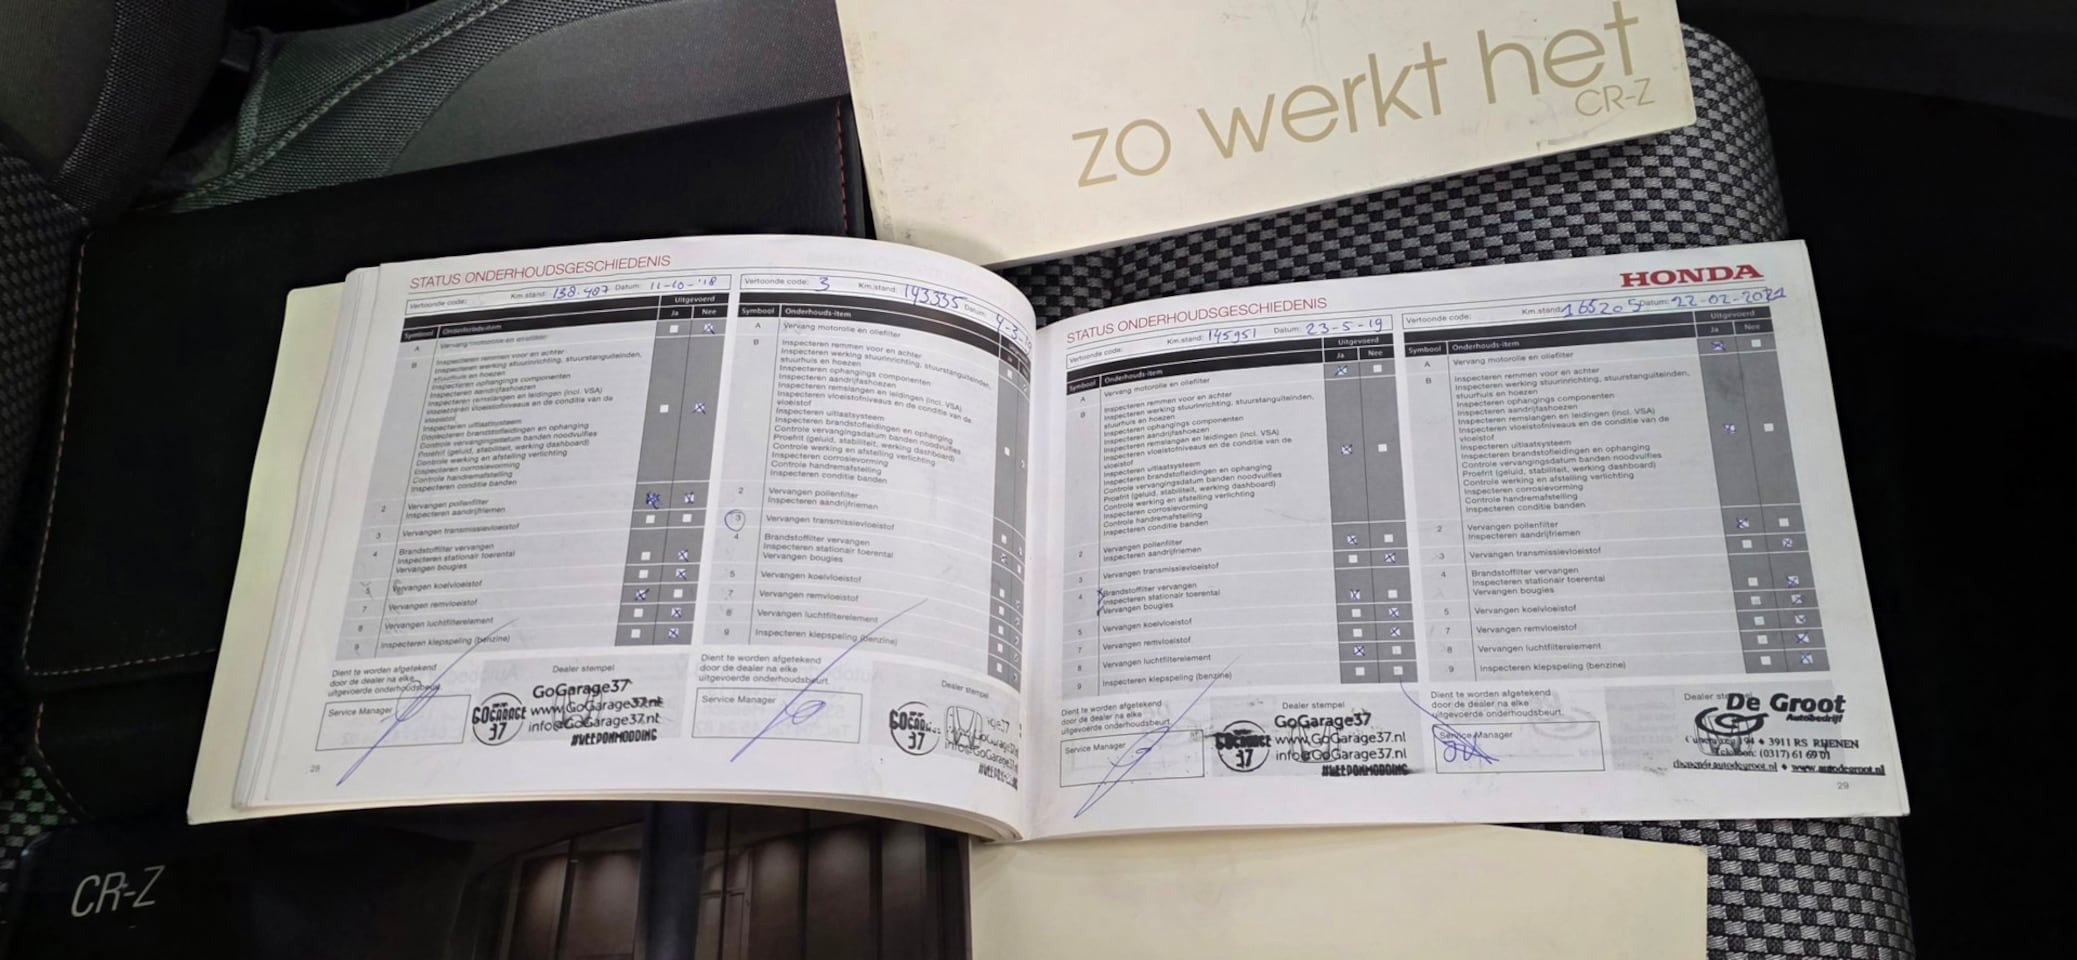 zo werkt het
CR-Z
STATUS ONDERHOUDSGESCHIEDENIS
Vertoonde code: Km.stand: 138.407 Datum: 11-10-'18
Uitgevoerd
Symbool Onderhouds-item Ja Nee
A Vervang motorolie en oliefilter
B Inspecteren remmen voor en achter
Inspecteren werking stuurinrichting, stuurstanguiteinden,
stuurhuis en hoezen
Inspecteren ophangings componenten
Inspecteren aandrijfashoezen
Inspecteren remslangen en leidingen (incl. VSA)
Inspecteren vloeistofniveaus en de conditie van de
vloeistof
Inspecteren uitlaatsysteem
Inspecteren brandstofleidingen en ophanging
Controle vervangingsdatum banden noodvulfles
Proefrit (geluid, stabiliteit, werking dashboard)
Controle werking en afstelling verlichting
Inspecteren corrosievorming
Controle handremafstelling
Inspecteren conditie banden
2 Vervangen pollenfilter
Inspecteren aandrijfriemen
3 Vervangen transmissievloeistof
4 Brandstoffilter vervangen
Inspecteren stationair toerental
Vervangen bougies
5 Vervangen koelvloeistof
7 Vervangen remvloeistof
8 Vervangen luchtfilterelement
9 Inspecteren klepspeling (benzine)
Dient te worden afgetekend
door de dealer na elke
uitgevoerde onderhoudsbeurt.
Service Manager
Dealer stempel
GOGARAGE
37
GoGarage37
www.GoGarage37.nl
info@GoGarage37.nl
#WEEDONMODDING
28
Vertoonde code: 3 Km.stand: 143335 Datum:
Symbool Onderhouds-item
A Vervang motorolie en oliefilter
B Inspecteren remmen voor en achter
Inspecteren werking stuurinrichting, stuurstanguiteinden,
stuurhuis en hoezen
Inspecteren ophangings componenten
Inspecteren aandrijfashoezen
Inspecteren remslangen en leidingen (incl. VSA)
Inspecteren vloeistofniveaus en de conditie van de
vloeistof
Inspecteren uitlaatsysteem
Inspecteren brandstofleidingen en ophanging
Controle vervangingsdatum banden noodvulfles
Proefrit (geluid, stabiliteit, werking dashboard)
Controle werking en afstelling verlichting
Inspecteren corrosievorming
Controle handremafstelling
Inspecteren conditie banden
2 Vervangen pollenfilter
Inspecteren aandrijfriemen
3 Vervangen transmissievloeistof
4 Brandstoffilter vervangen
Inspecteren stationair toerental
Vervangen bougies
5 Vervangen koelvloeistof
7 Vervangen remvloeistof
8 Vervangen luchtfilterelement
9 Inspecteren klepspeling (benzine)
Dient te worden afgetekend
door de dealer na elke
uitgevoerde onderhoudsbeurt.
Service Manager
Dealer stempel
37
HONDA
STATUS ONDERHOUDSGESCHIEDENIS
Vertoonde code: Km.stand: 145951 Datum: 23-5-19
Uitgevoerd
Symbool Onderhouds-item Ja Nee
A Vervang motorolie en oliefilter
B Inspecteren remmen voor en achter
Inspecteren werking stuurinrichting, stuurstanguiteinden,
stuurhuis en hoezen
Inspecteren ophangings componenten
Inspecteren aandrijfashoezen
Inspecteren remslangen en leidingen (incl. VSA)
Inspecteren vloeistofniveaus en de conditie van de
vloeistof
Inspecteren uitlaatsysteem
Inspecteren brandstofleidingen en ophanging
Controle vervangingsdatum banden noodvulfles
Proefrit (geluid, stabiliteit, werking dashboard)
Controle werking en afstelling verlichting
Inspecteren corrosievorming
Controle handremafstelling
Inspecteren conditie banden
2 Vervangen pollenfilter
Inspecteren aandrijfriemen
3 Vervangen transmissievloeistof
4 Brandstoffilter vervangen
Inspecteren stationair toerental
Vervangen bougies
5 Vervangen koelvloeistof
7 Vervangen remvloeistof
8 Vervangen luchtfilterelement
9 Inspecteren klepspeling (benzine)
Dient te worden afgetekend
door de dealer na elke
uitgevoerde onderhoudsbeurt.
Service Manager
Dealer stempel
37
GoGarage37
www.GoGarage37.nl
info@GoGarage37.nl
#WEEDONMODDING
Vertoonde code: Km.stand: 165205 Datum: 22-02-2021
Uitgevoerd
Symbool Onderhouds-item Ja Nee
A Vervang motorolie en oliefilter
B Inspecteren remmen voor en achter
Inspecteren werking stuurinrichting, stuurstanguiteinden,
stuurhuis en hoezen
Inspecteren ophangings componenten
Inspecteren aandrijfashoezen
Inspecteren remslangen en leidingen (incl. VSA)
Inspecteren vloeistofniveaus en de conditie van de
vloeistof
Inspecteren uitlaatsysteem
Inspecteren brandstofleidingen en ophanging
Controle vervangingsdatum banden noodvulfles
Proefrit (geluid, stabiliteit, werking dashboard)
Controle werking en afstelling verlichting
Inspecteren corrosievorming
Controle handremafstelling
Inspecteren conditie banden
2 Vervangen pollenfilter
Inspecteren aandrijfriemen
3 Vervangen transmissievloeistof
4 Brandstoffilter vervangen
Inspecteren stationair toerental
Vervangen bougies
5 Vervangen koelvloeistof
7 Vervangen remvloeistof
8 Vervangen luchtfilterelement
9 Inspecteren klepspeling (benzine)
Dient te worden afgetekend
door de dealer na elke
uitgevoerde onderhoudsbeurt.
Service Manager
Dealer
De Groot
Autobedrijf
3911 RS RHENEN
Telefoon: (0317) 61 69 01
www.autodegroot.nl
29
CR-Z